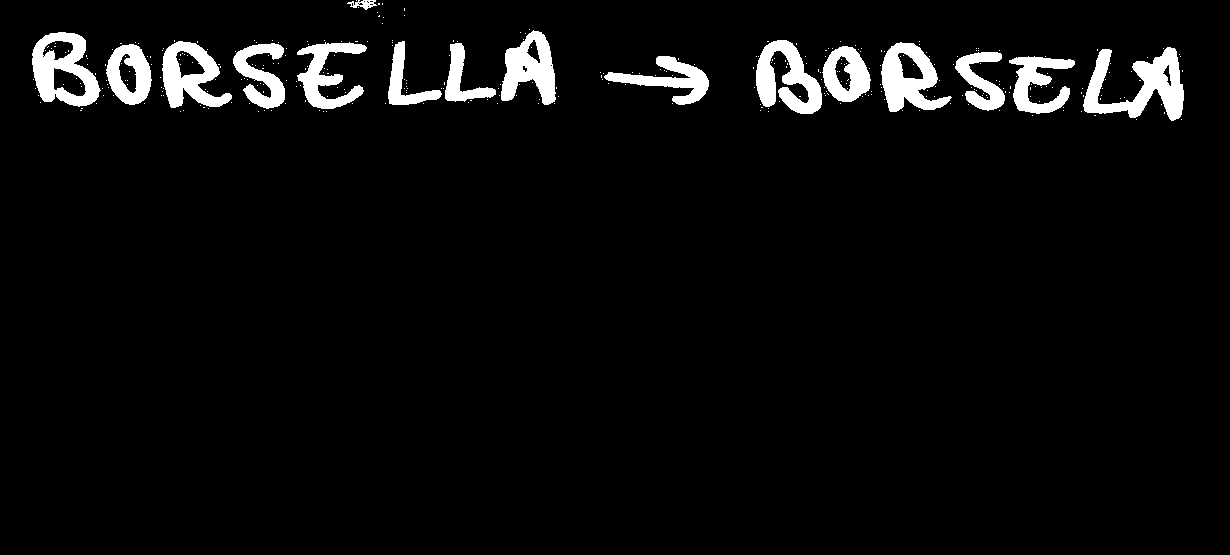 BORSELLA → BORSELA